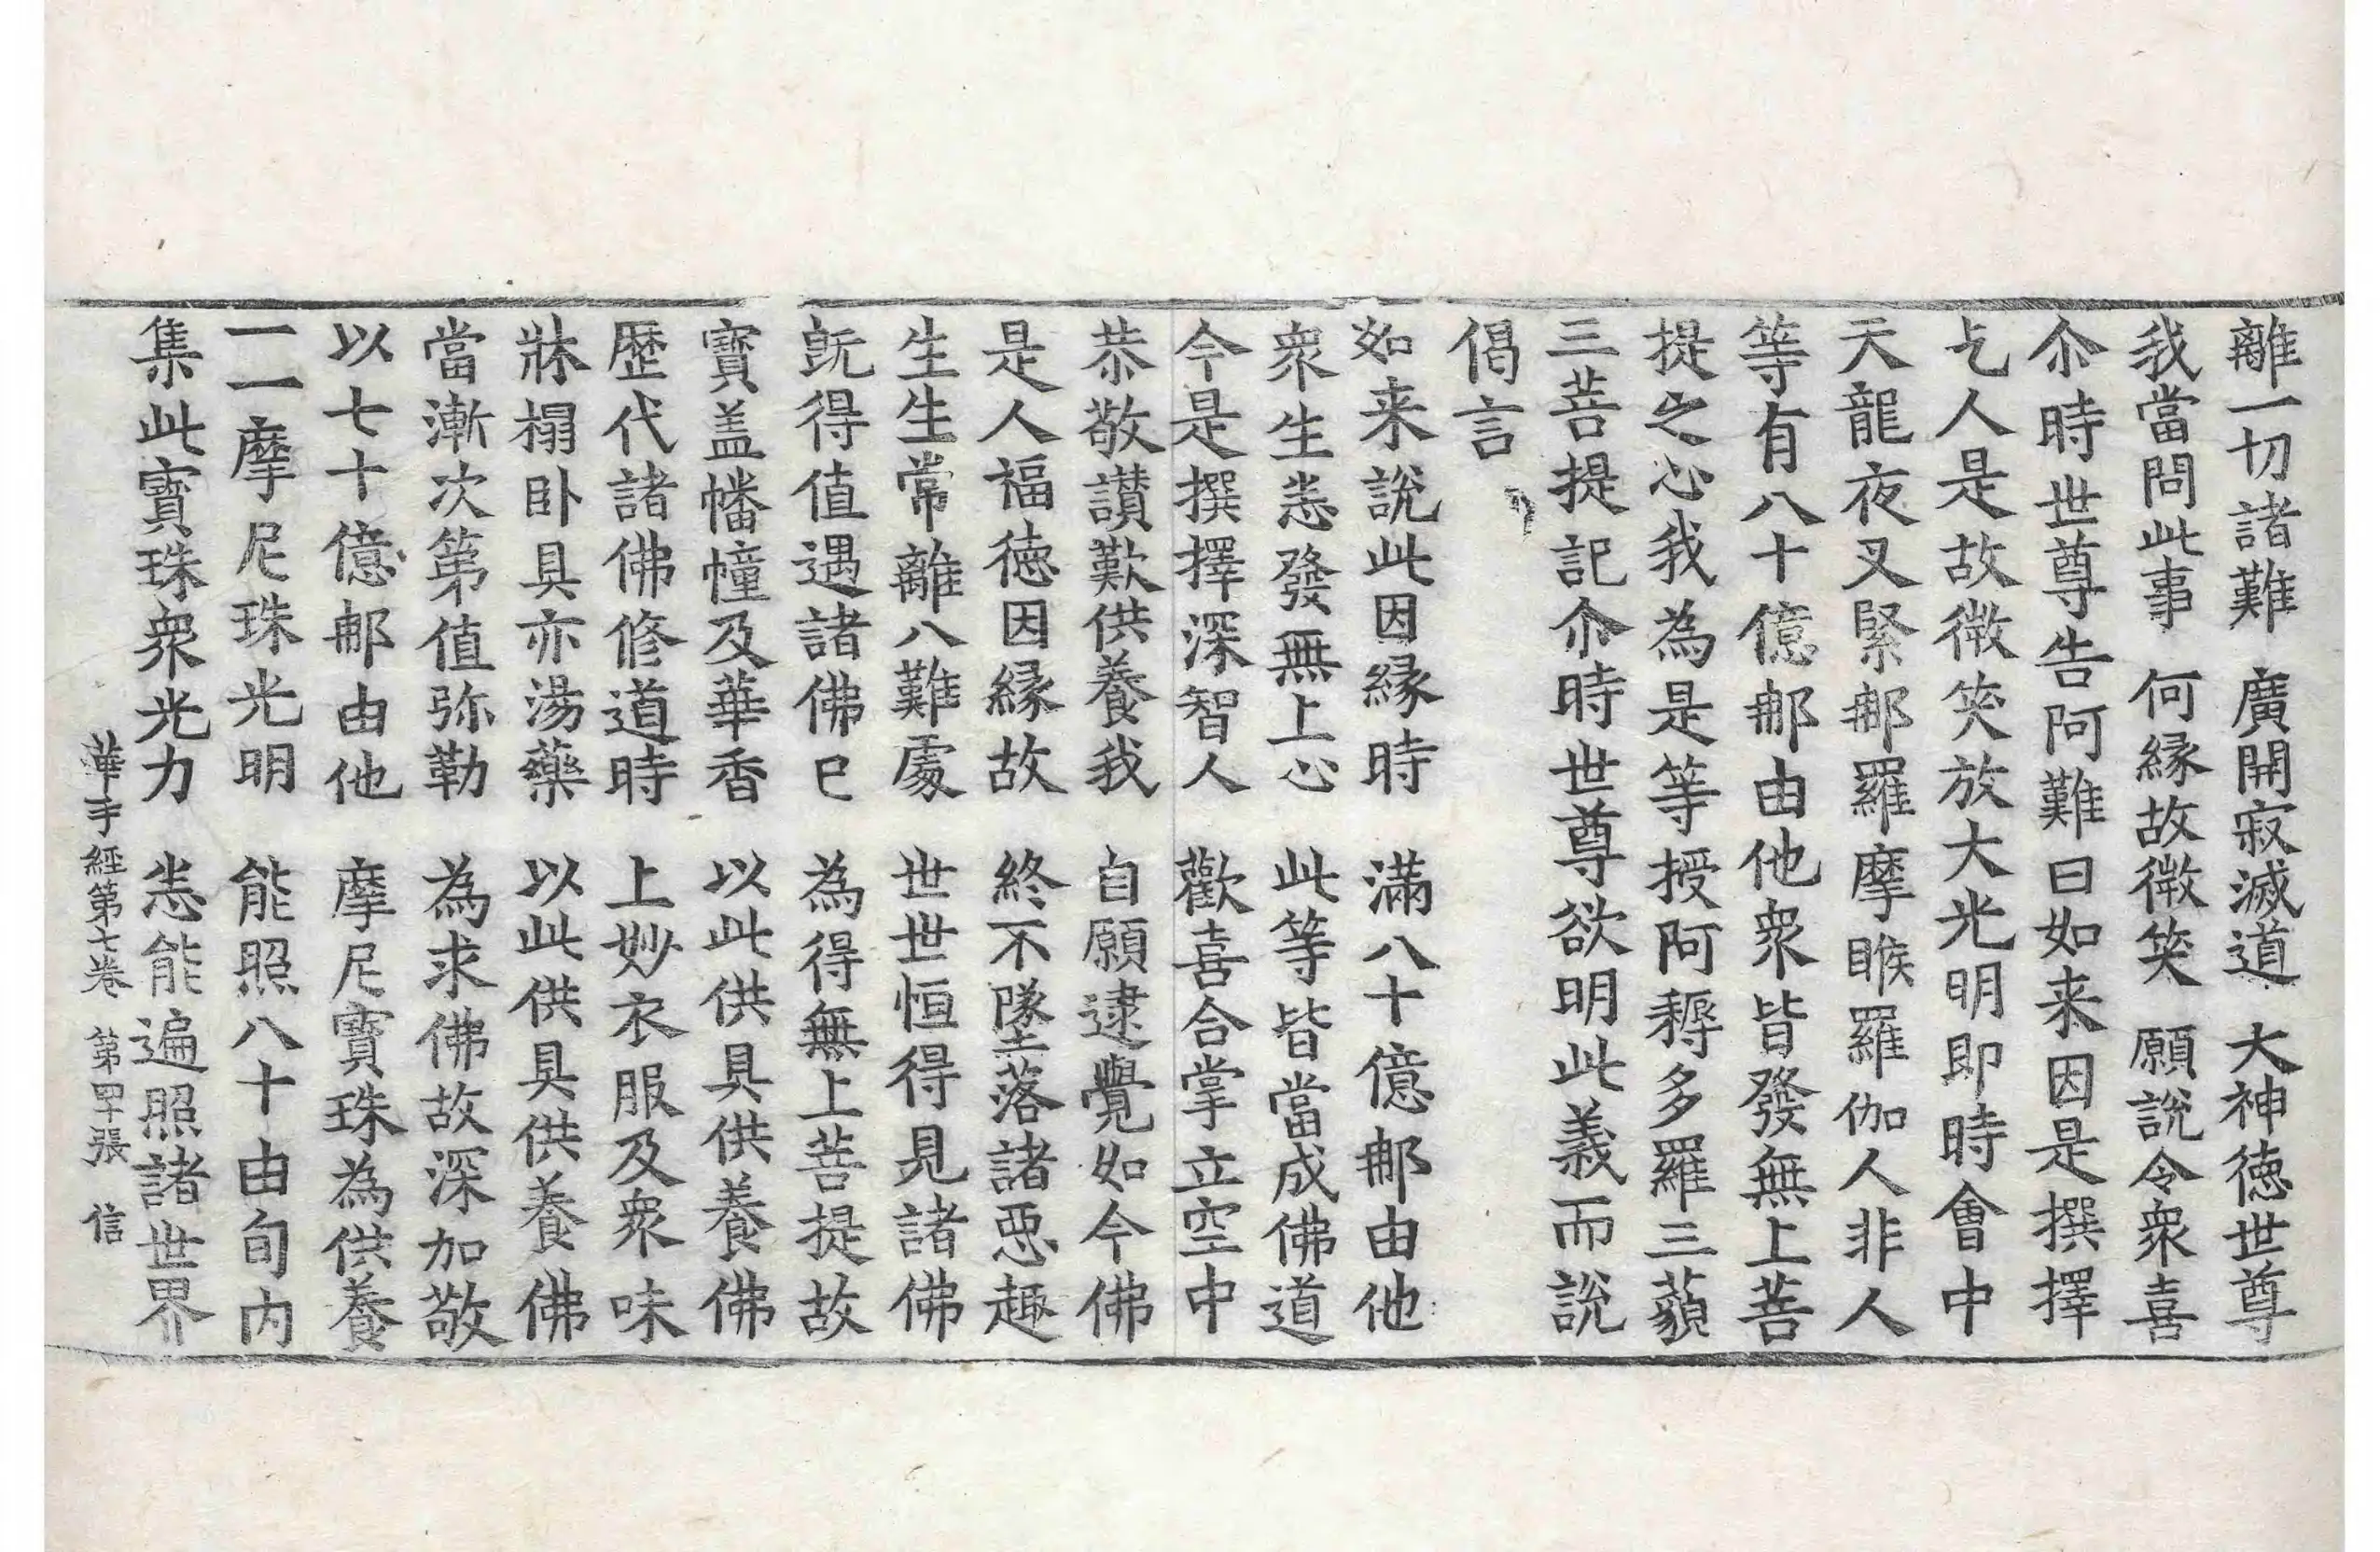 離一切諸難 廣開寂滅道 大神徳世尊
我當問此事 何縁故微笑 願說令衆喜
尒時世尊告阿難曰如来因是撰擇
乞人是故微笑放大光明即時會中
天龍夜叉緊那羅摩睺羅伽人非人
等有八十億那由他衆皆發無上菩
提之心我為是等授阿耨多羅三藐
三菩提記尒時世尊欲明此義而說
偈言
如来說此因縁時 滿八十億那由他
衆生悉發無上心 此等皆當成佛道
今是撰擇深智人 歡喜合掌立空中
恭敬讃歎供養我 自願逮覺如今佛
是人福徳因縁故 終不墜落諸惡趣
生生常離八難處 世世恒得見諸佛
旣得值遇諸佛已 為得無上菩提故
寶盖幡幢及華香 以此供具供養佛
歷代諸佛修道時 上妙衣服及衆味
牀榻卧具亦湯藥 以此供具供養佛
當漸次第值弥勒 為求佛故深加敬
以七十億那由他 摩尼寶珠為供養
一一摩尼珠光明 能照八十由旬内
集此寳珠衆光力 悉能遍照諸世界
華手經第七卷 第四十張 信